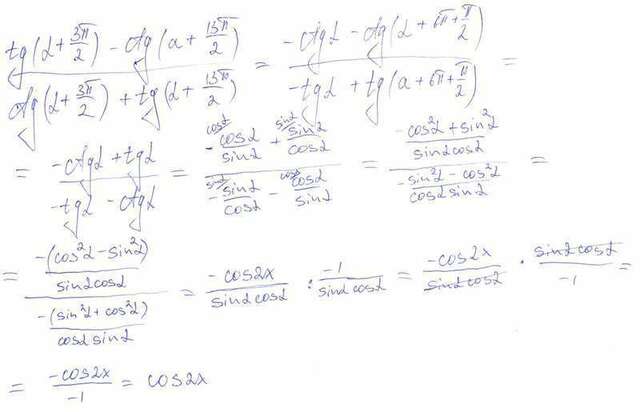 (tg(α + 3π/2) - ctg(a + 13π/2)) / (ctg(α + 3π/2) + tg(α + 13π/2)) = (-ctgα - ctg(α + 6π + π/2)) / (-tgα + tg(a + 6π + π/2)) =
= (-ctgα + tgα) / (-tgα - ctgα) = (-cosα/sinα + sinα/cosα) / (-sinα/cosα - cosα/sinα) = ((-cos²α + sin²α) / (sinαcosα)) / ((-sin²α - cos²α) / (cosαsinα)) =
= (-(cos²α - sin²α) / (sinαcosα)) / (-(sin²α + cos²α) / (cosαsinα)) = -cos2x / (sinαcosα) : -1 / (sinαcosα) = -cos2x / (sinαcosα) · (sinαcosα) / -1 =
= -cos2x / -1 = cos2x